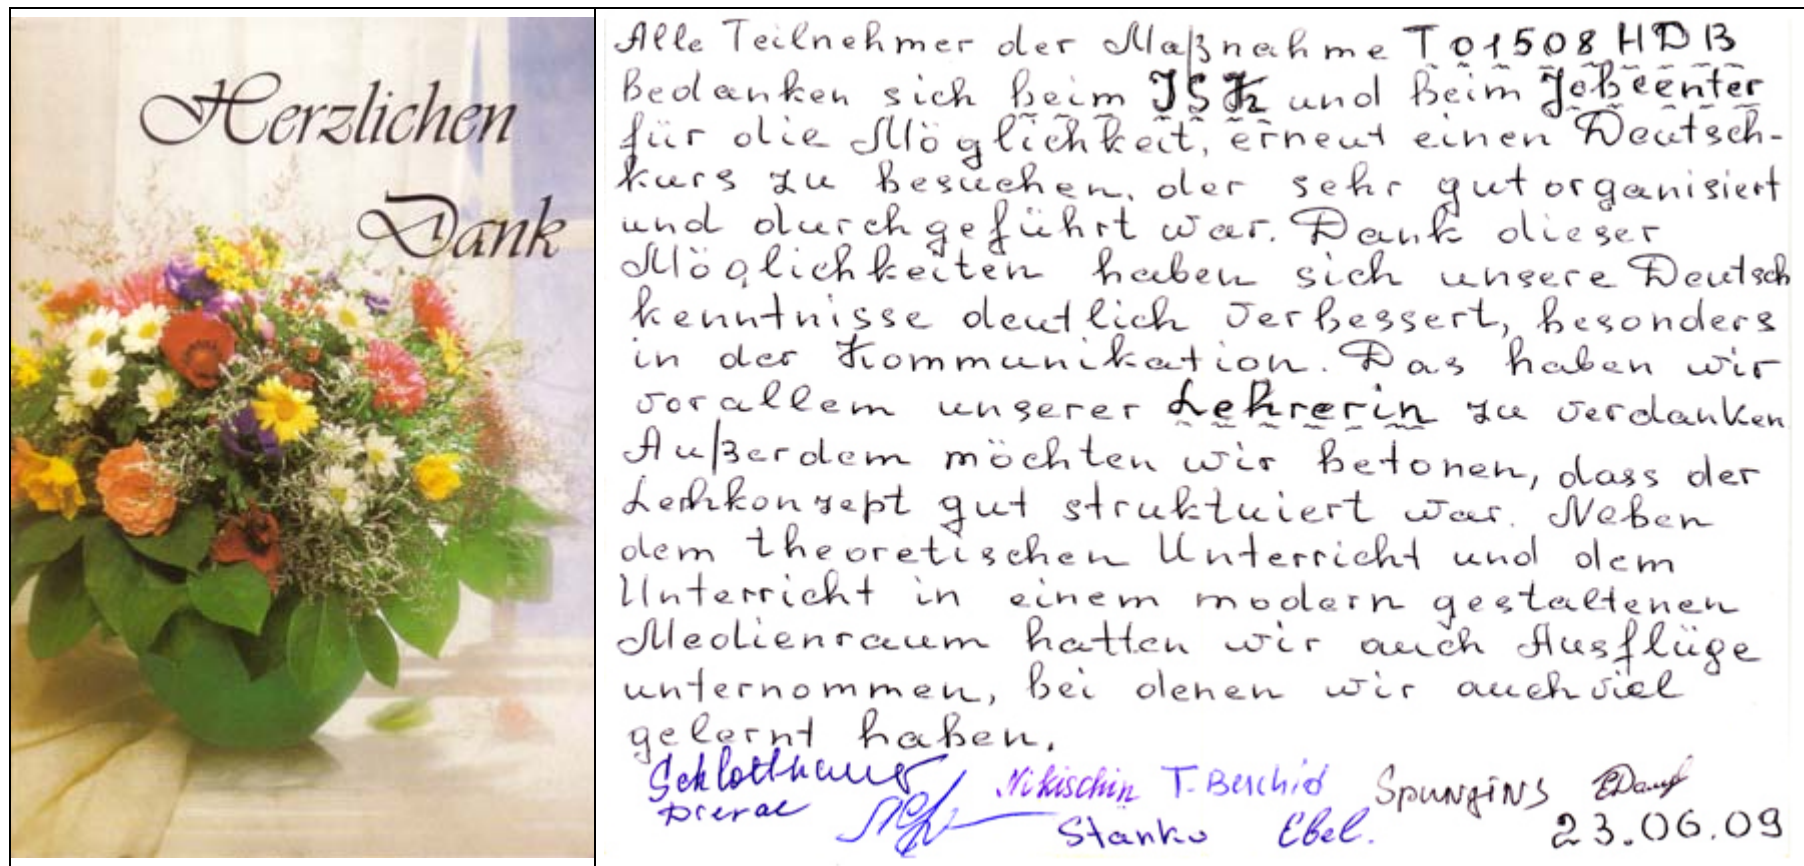 Herzlichen
Dank
Alle Teilnehmer der Maßnahme T01508HDB
Bedanken sich beim ISK und beim Jobcenter
für die Möglichkeit, erneut einen Deutsch-
kurs zu besuchen, der sehr gut organisiert
und durchgeführt war. Dank dieser
Möglichkeiten haben sich unsere Deutsch
kenntnisse deutlich verbessert, besonders
in der Kommunikation. Das haben wir
vor allem unserer Lehrerin zu verdanken
Außerdem möchten wir betonen, dass der
Lehkonzept gut struktuiert war. Neben
dem theoretischen Unterricht und dem
Unterricht in einem modern gestaltenen
Medienraum hatten wir auch Ausflüge
unternommen, bei denen wir auch viel
gelernt haben.
Schlotthauer Nikischin T. Berchid Spungins
Stanko Ebel. 23.06.09